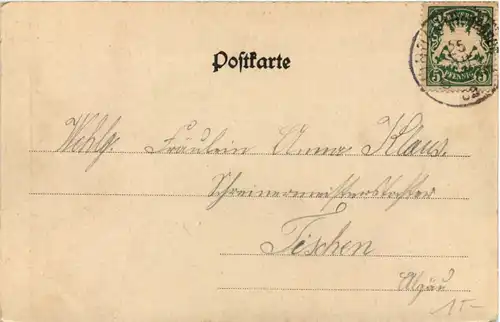 Postkarte
25
5 5
PFENNIG
02
Wohlg. Fräulein Anna Klaus.
Schreinermeisterstochter
Fischen
Algäu
15-